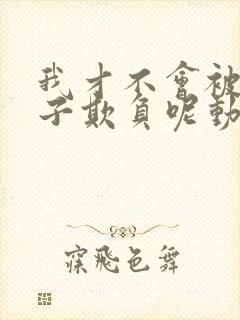 我才不會被
子欺負呢動
寐飛色舞